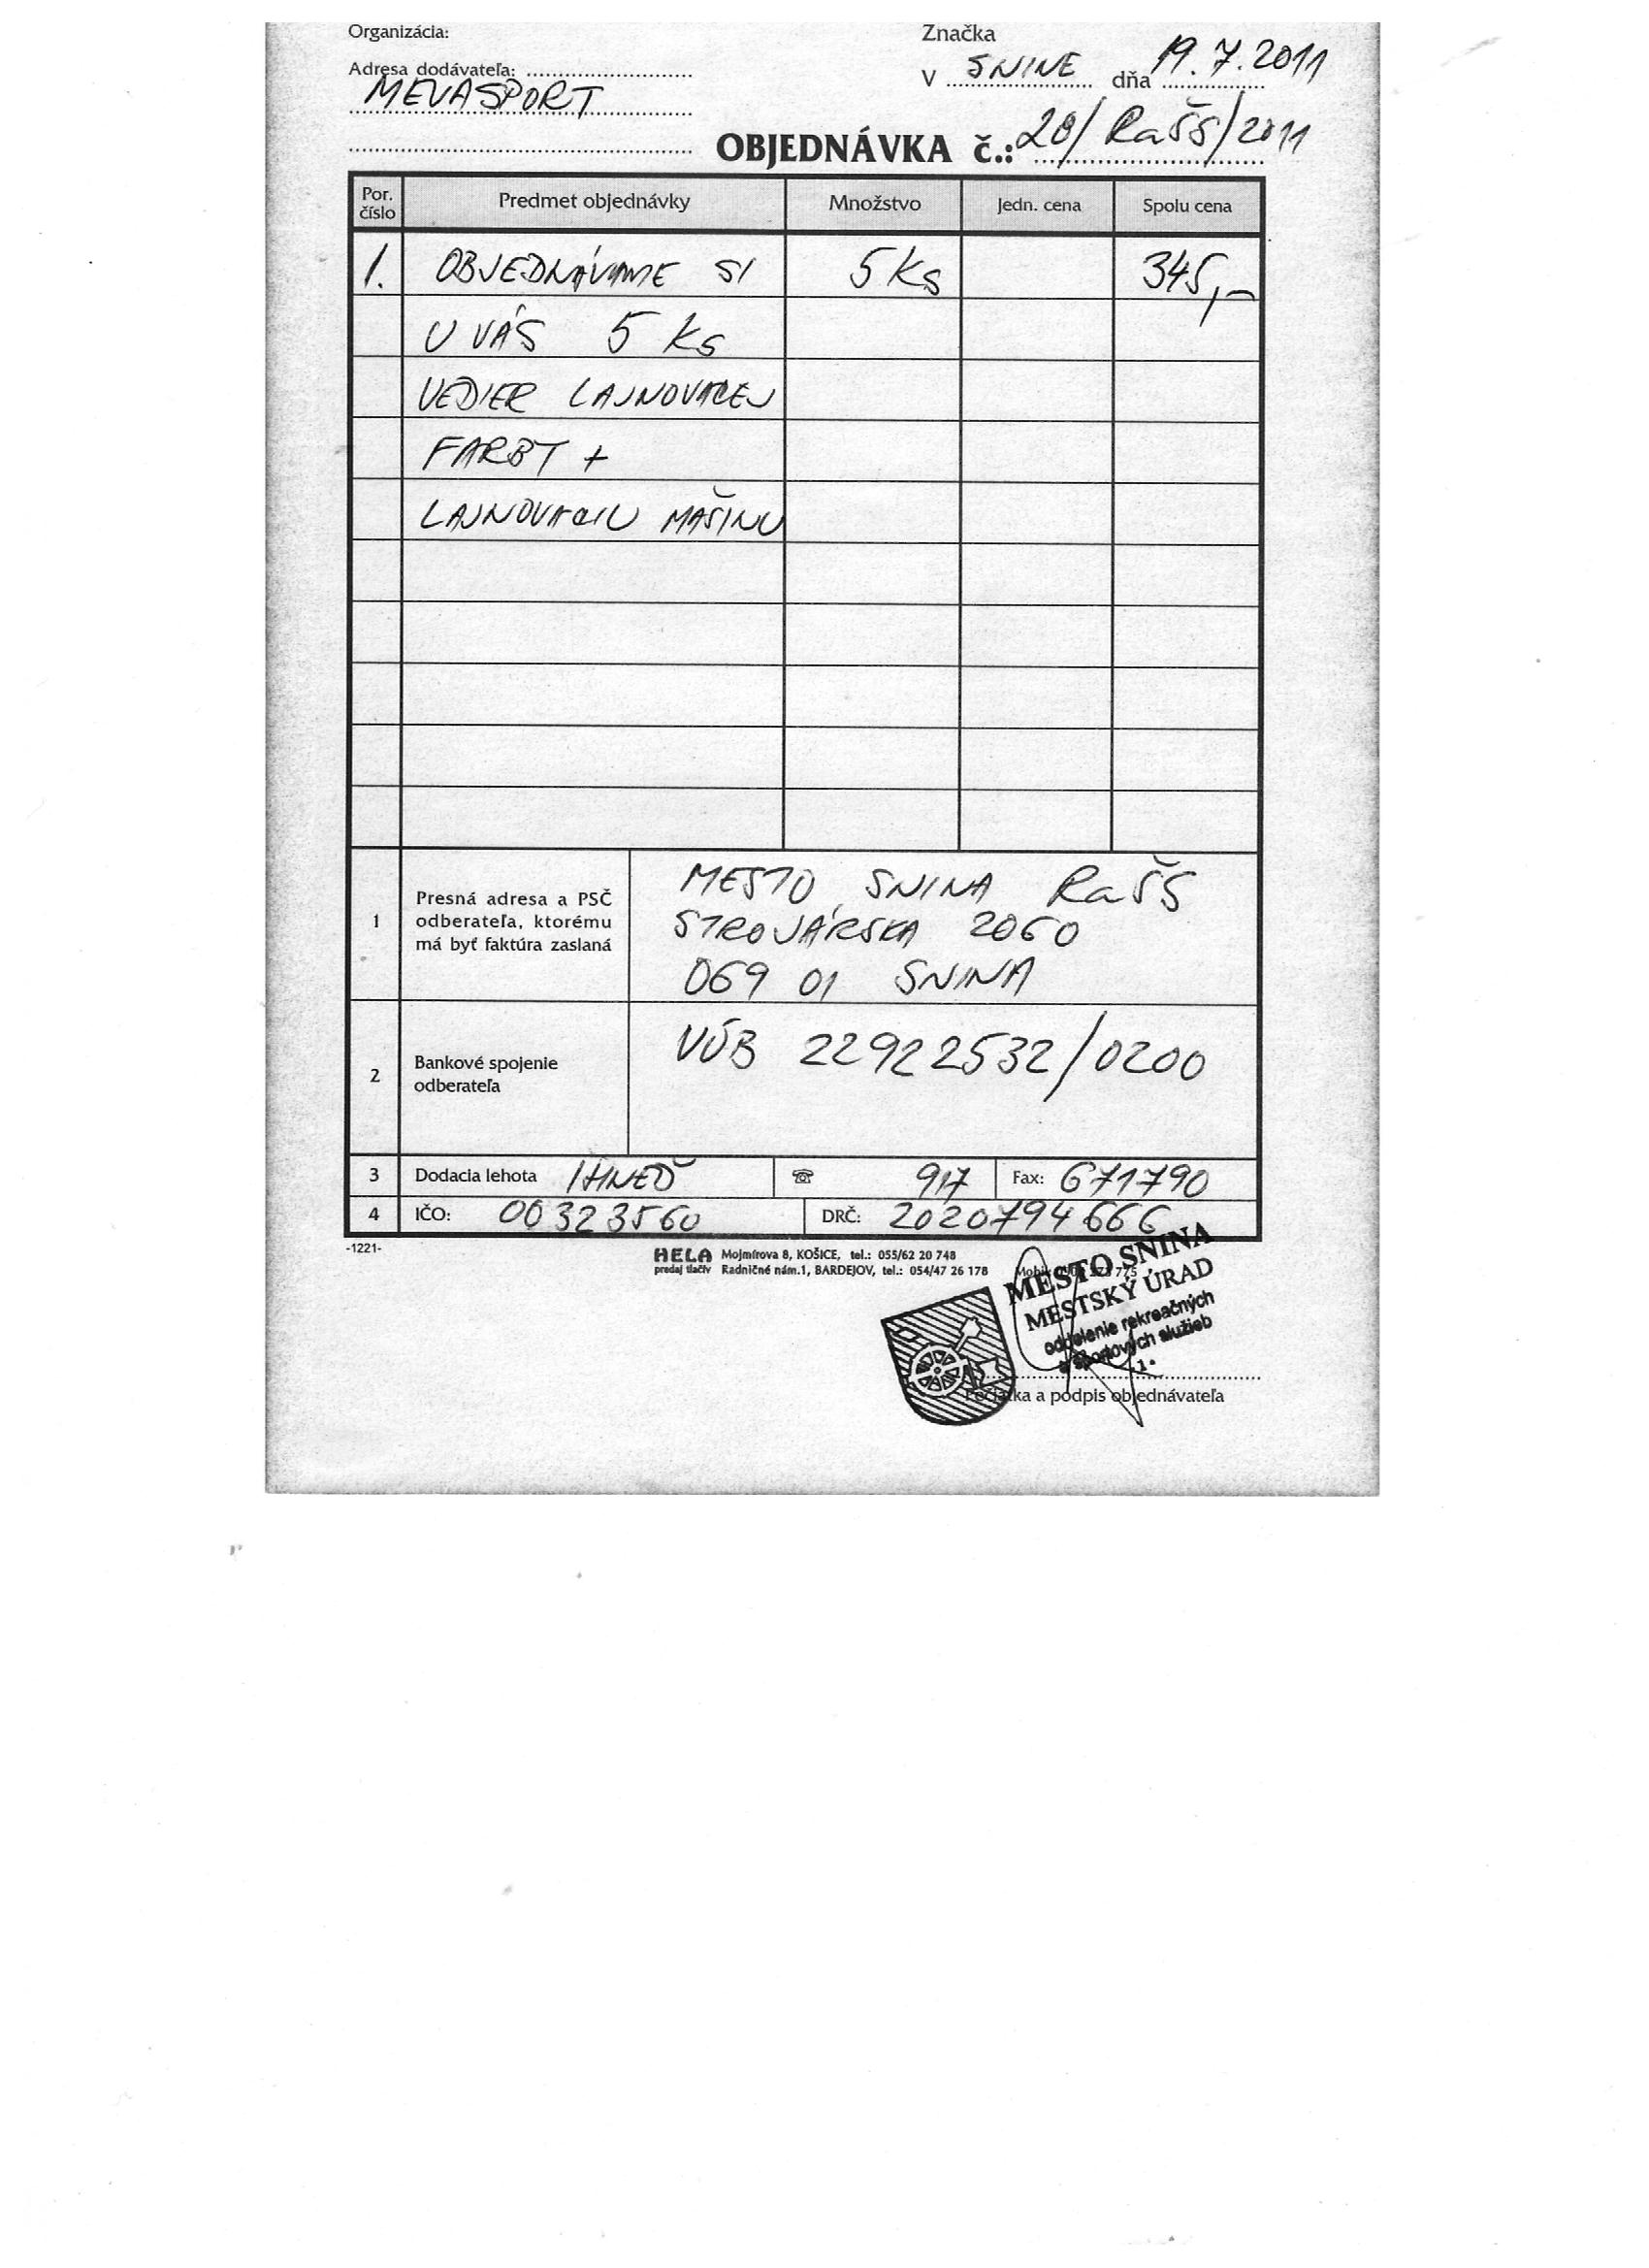 Organizácia:
Značka
Adresa dodávateľa: ....................
V SNINE dňa 19.7.2011
MEVASPORT
OBJEDNÁVKA č.: 28/RaŠS/2011
Por. číslo Predmet objednávky Množstvo Jedn. cena Spolu cena
1. OBJEDNÁVAME SI 5 Ks 345,-
U VÁS 5 Ks
VEDIER LAJNOVACEJ
FARBY +
LAJNOVACIU MAŠINU
1 Presná adresa a PSČ odberateľa, ktorému má byť faktúra zaslaná
MESTO SNINA RaŠS
STROJÁRSKA 2060
069 01 SNINA
2 Bankové spojenie odberateľa
VÚB 22922532/0200
3 Dodacia lehota IHNEĎ ☏ 917 Fax: 671790
4 IČO: 00323560 DRČ: 2020794666
-1221-
HELA Mojmírova 8, KOŠICE, tel.: 055/62 20 748
predaj tlačív Radničné nám.1, BARDEJOV, tel.: 054/47 26 178
MESTO SNINA
MESTSKÝ ÚRAD
oddelenie rekreačných
a športových služieb
-1-
Pečiatka a podpis objednávateľa